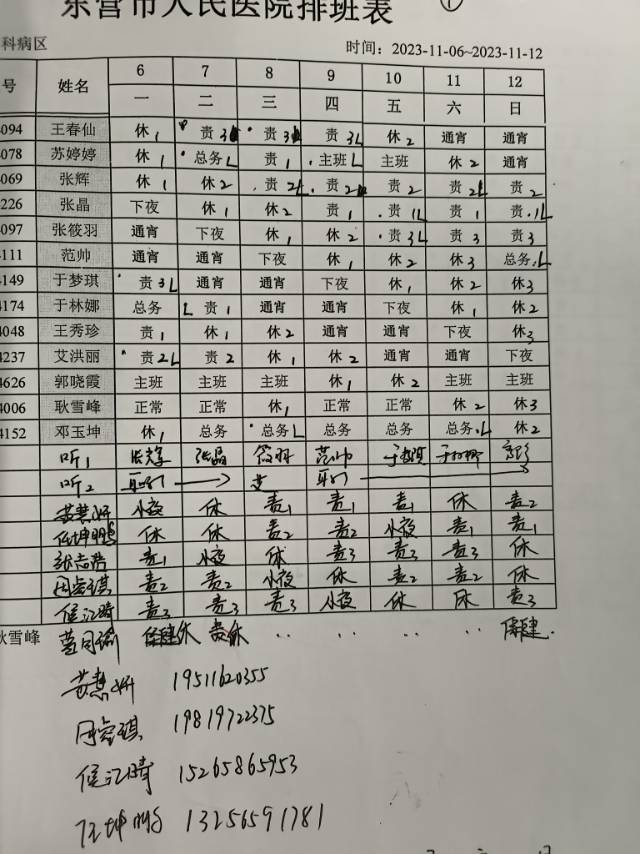 东营市人民医院排班表 ①
科病区 时间：2023-11-06~2023-11-12
号 姓名 6 7 8 9 10 11 12
一 二 三 四 五 六 日
4094 王春仙 休1 责3L 责3L 责3L 休2 通宵 通宵
4078 苏婷婷 休1 总务L 责1 主班L 主班 休2 通宵
4069 张辉 休1 休2 责2L 责2L 责2 责2L 责2
226 张晶 下夜 休1 休2 责1 责1L 责1 责1L
4097 张筱羽 通宵 下夜 休1 休2 责3L 责3 责3
4111 范帅 通宵 通宵 下夜 休1 休2 休3 总务L
4149 于梦琪 责3L 通宵 通宵 下夜 休1 休2 休3
4174 于林娜 总务L 责1 通宵 通宵 下夜 休1 休2
4048 王秀珍 责1 休1 休2 通宵 通宵 下夜 休3
4237 艾洪丽 责2L 责2 休1 休2 通宵 通宵 下夜
4626 郭晓霞 主班 主班 主班 休1 休2 主班 主班
4006 耿雪峰 正常 正常 休1 正常 正常 休2 休3
4152 邓玉坤 休1 总务 总务L 总务 总务 总务L 休2
听1 张辉 张晶 筱羽 范帅
听2
小夜 休 责1 责1 责1 休 责2
休 休 责2 责2 小夜 责1 责1
责1 小夜 休 责3 责3 责3 休
责2 责2 小夜 休 责2 责2 休
侯江晴 责3 责3 责3 小夜 休 休 责3
耿雪峰
19511620355
19819722375
侯江晴 15265865953
13256591781